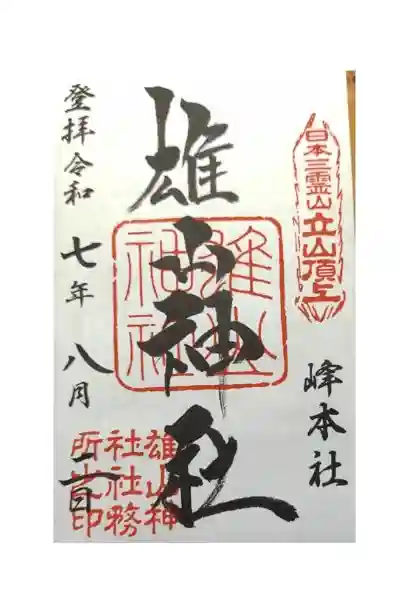 日本三霊山立山頂上
峰本社
雄山神社
雄山神社
登拝令和七年八月二日
雄山神
社社務
所之印